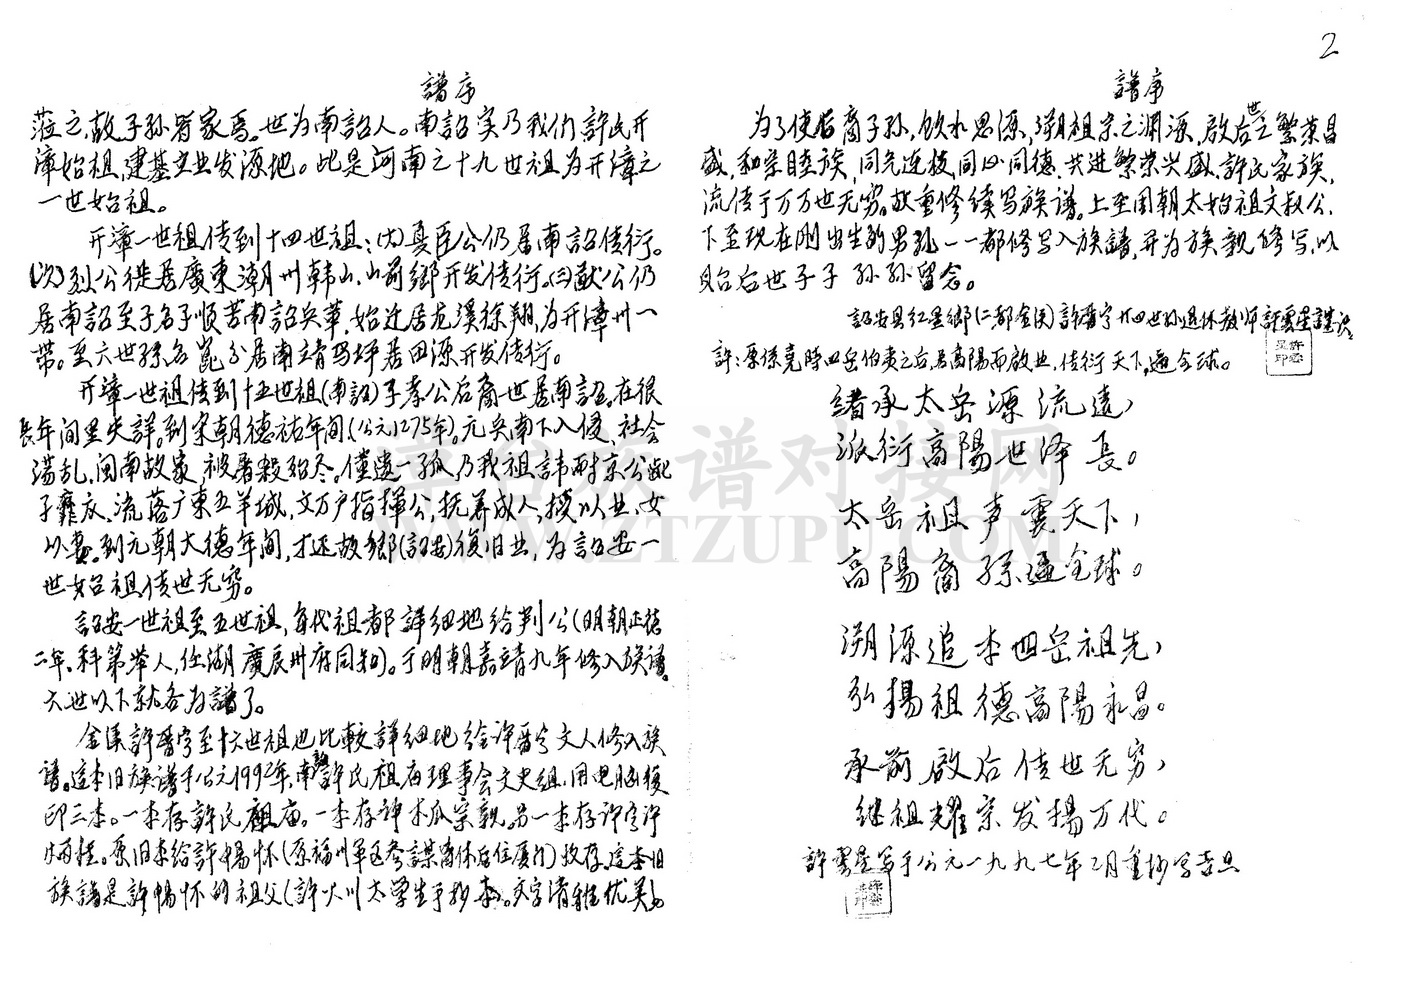 2
譜序
蒞之,故子孫皆家焉。世为南詔人。南詔实乃我们許氏开
漳始祖,建基立业发源地。此是河南之十九世祖为开漳之
一世始祖。
开漳一世祖传到十四世祖:(大)真臣公仍居南詔传衍。
(次)烈公徙居廣東潮州韩山,山前鄉开发传衍。(三)猷公仍
居南詔至子名子順苦南詔兵革,始迁居龙溪徐翔,为开漳州一
带。至六世孫名崑分居南靖馬坪居田源开发传衍。
开漳一世祖传到十五世祖(南詔)子孝公后裔一世居南詔。在很
長年间里失詳。到宋朝德祐年间(公元1275年)。元兵南下入侵,社会
荡乱,闽南故家,被屠殺殆尽。僅遗一孤乃我祖諱耐京公
子,流落广東五羊城,文万户指揮公,抚养成人,授以业,女
以妻。到元朝大德年间,才还故鄉(詔安)復旧业,为詔安一
世始祖传世无穷。
詔安一世祖至五世祖,每代祖都詳细地给判公(明朝正德
二年,科第举人,任湖廣辰州府同知)。于明朝嘉靖九年修入族譜。
六世以下就各为譜了。
金溪許晋宇至十六世祖也比較詳细地给許晋宇文人修入族
譜。這本旧族谱于公元1992年,南詔許氏祖庙理事会文史組,用电腦復
印三本。一本存許氏祖庙。一本存許木瓜宗親。另一本存許
炳桂。原旧本给許暢怀(原福州軍区参謀离休后住厦门)收存。這本旧
族譜是許暢怀的祖父(許火川太学生手抄本。文字清雅优美
譜序
为了使后裔子孫,饮水思源,溯祖宗之渊源,啟后世之繁荣昌
盛,和宗睦族,同气连枝,同心同德,共进繁荣兴盛,許氏家族,
流传于万万世无穷。故重修续写族谱。上至周朝太始祖文叔公,
下至现在刚出生的男孙一一都修写入族譜,并为族親修写,以
貽后世子子孫孫留念。
詔安县红星鄉(二都金溪)許晋宇廿四世孙退休教师許雲星謹识
許:原係堯時四岳伯夷之后居高陽而啟业,传衍天下,遍全球。
許雲
星印
緒承太岳源流遠,
派衍高陽世泽長。
太岳祖声震天下,
高陽裔孫遍全球。
溯源追本四岳祖先,
弘揚祖德高陽永昌。
承前啟后传世无穷,
继祖耀宗发揚万代。
許雲星写于公元一九九七年2月重抄写吉旦